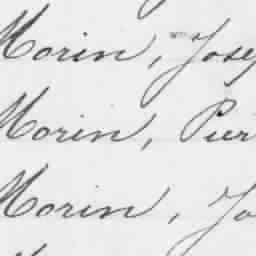 Morin, Jose
Morin, Pier
Morin, Jo